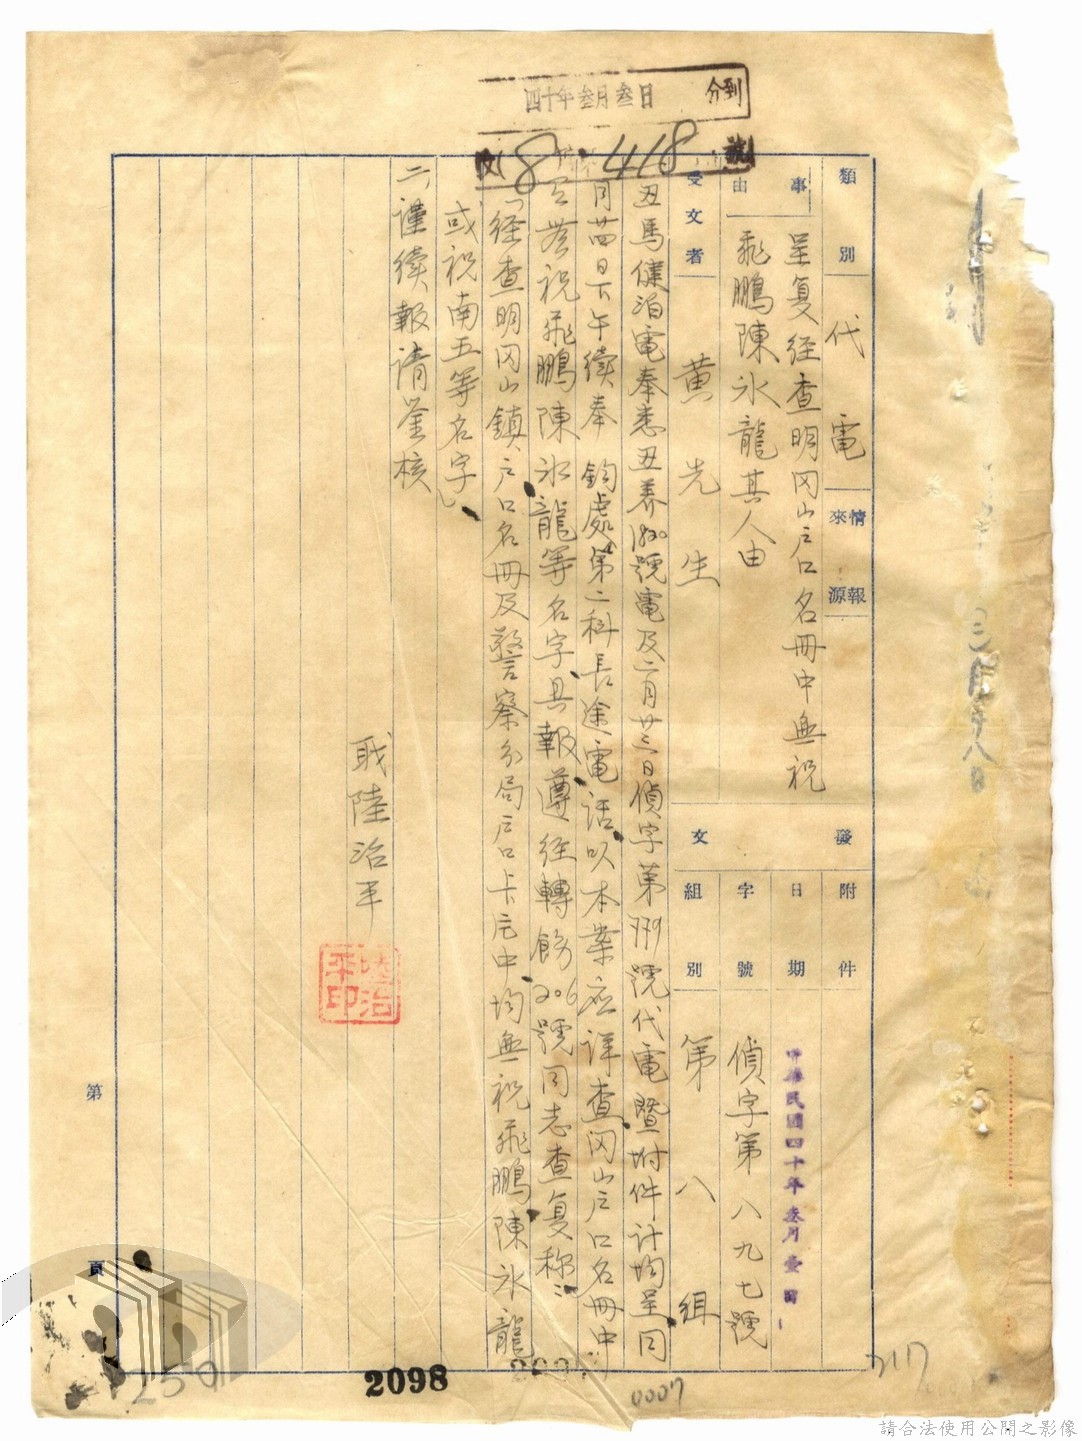 四十年叁月叁日
分到
收 8 418 號
類別 代電
情報來源
事由 呈复经查明冈山户口名冊中無祝
飛鵬陳氷龍其人由
受文者 黄先生
發文
附件
日期 中華民國四十年叁月壹日
字號 偵字第八九七號
組別 第八组
丑馬健泊電奉悉丑养1820號電及二月廿三日偵字第779號代電暨附件计均呈同
月廿四日下午續奉 鈞處第二科長途電话以本業应详查冈山户口名冊中
祝飛鵬陳氷龍等名字具報遵经轉飭206號同志查复称：
「经查明冈山鎮户口名冊及警察分局户口卡片中均無祝飛鵬陳氷龍
或祝南五等名字」
二、谨續報请鉴核
职陸治平
陸治平印
第
頁
2501
2098
0007
三月廿八日
717
請合法使用公開之影像